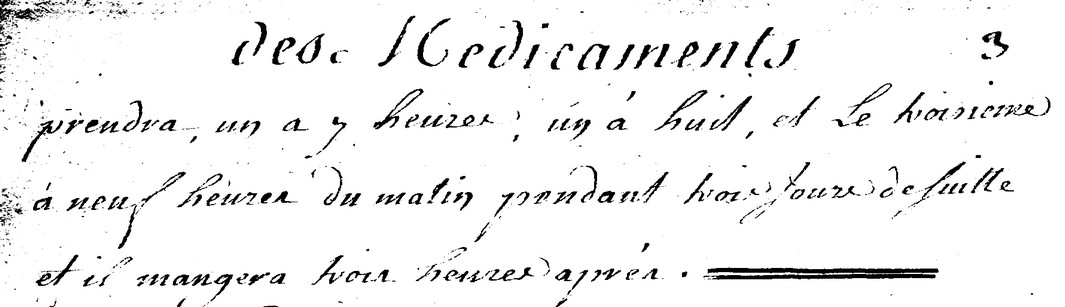 des Medicaments 3
prendra, un a 7 heures, un á huit, et Le troisieme
á neuf heures du matin pendant trois Jours de suitte
et il mangera trois heures aprés.